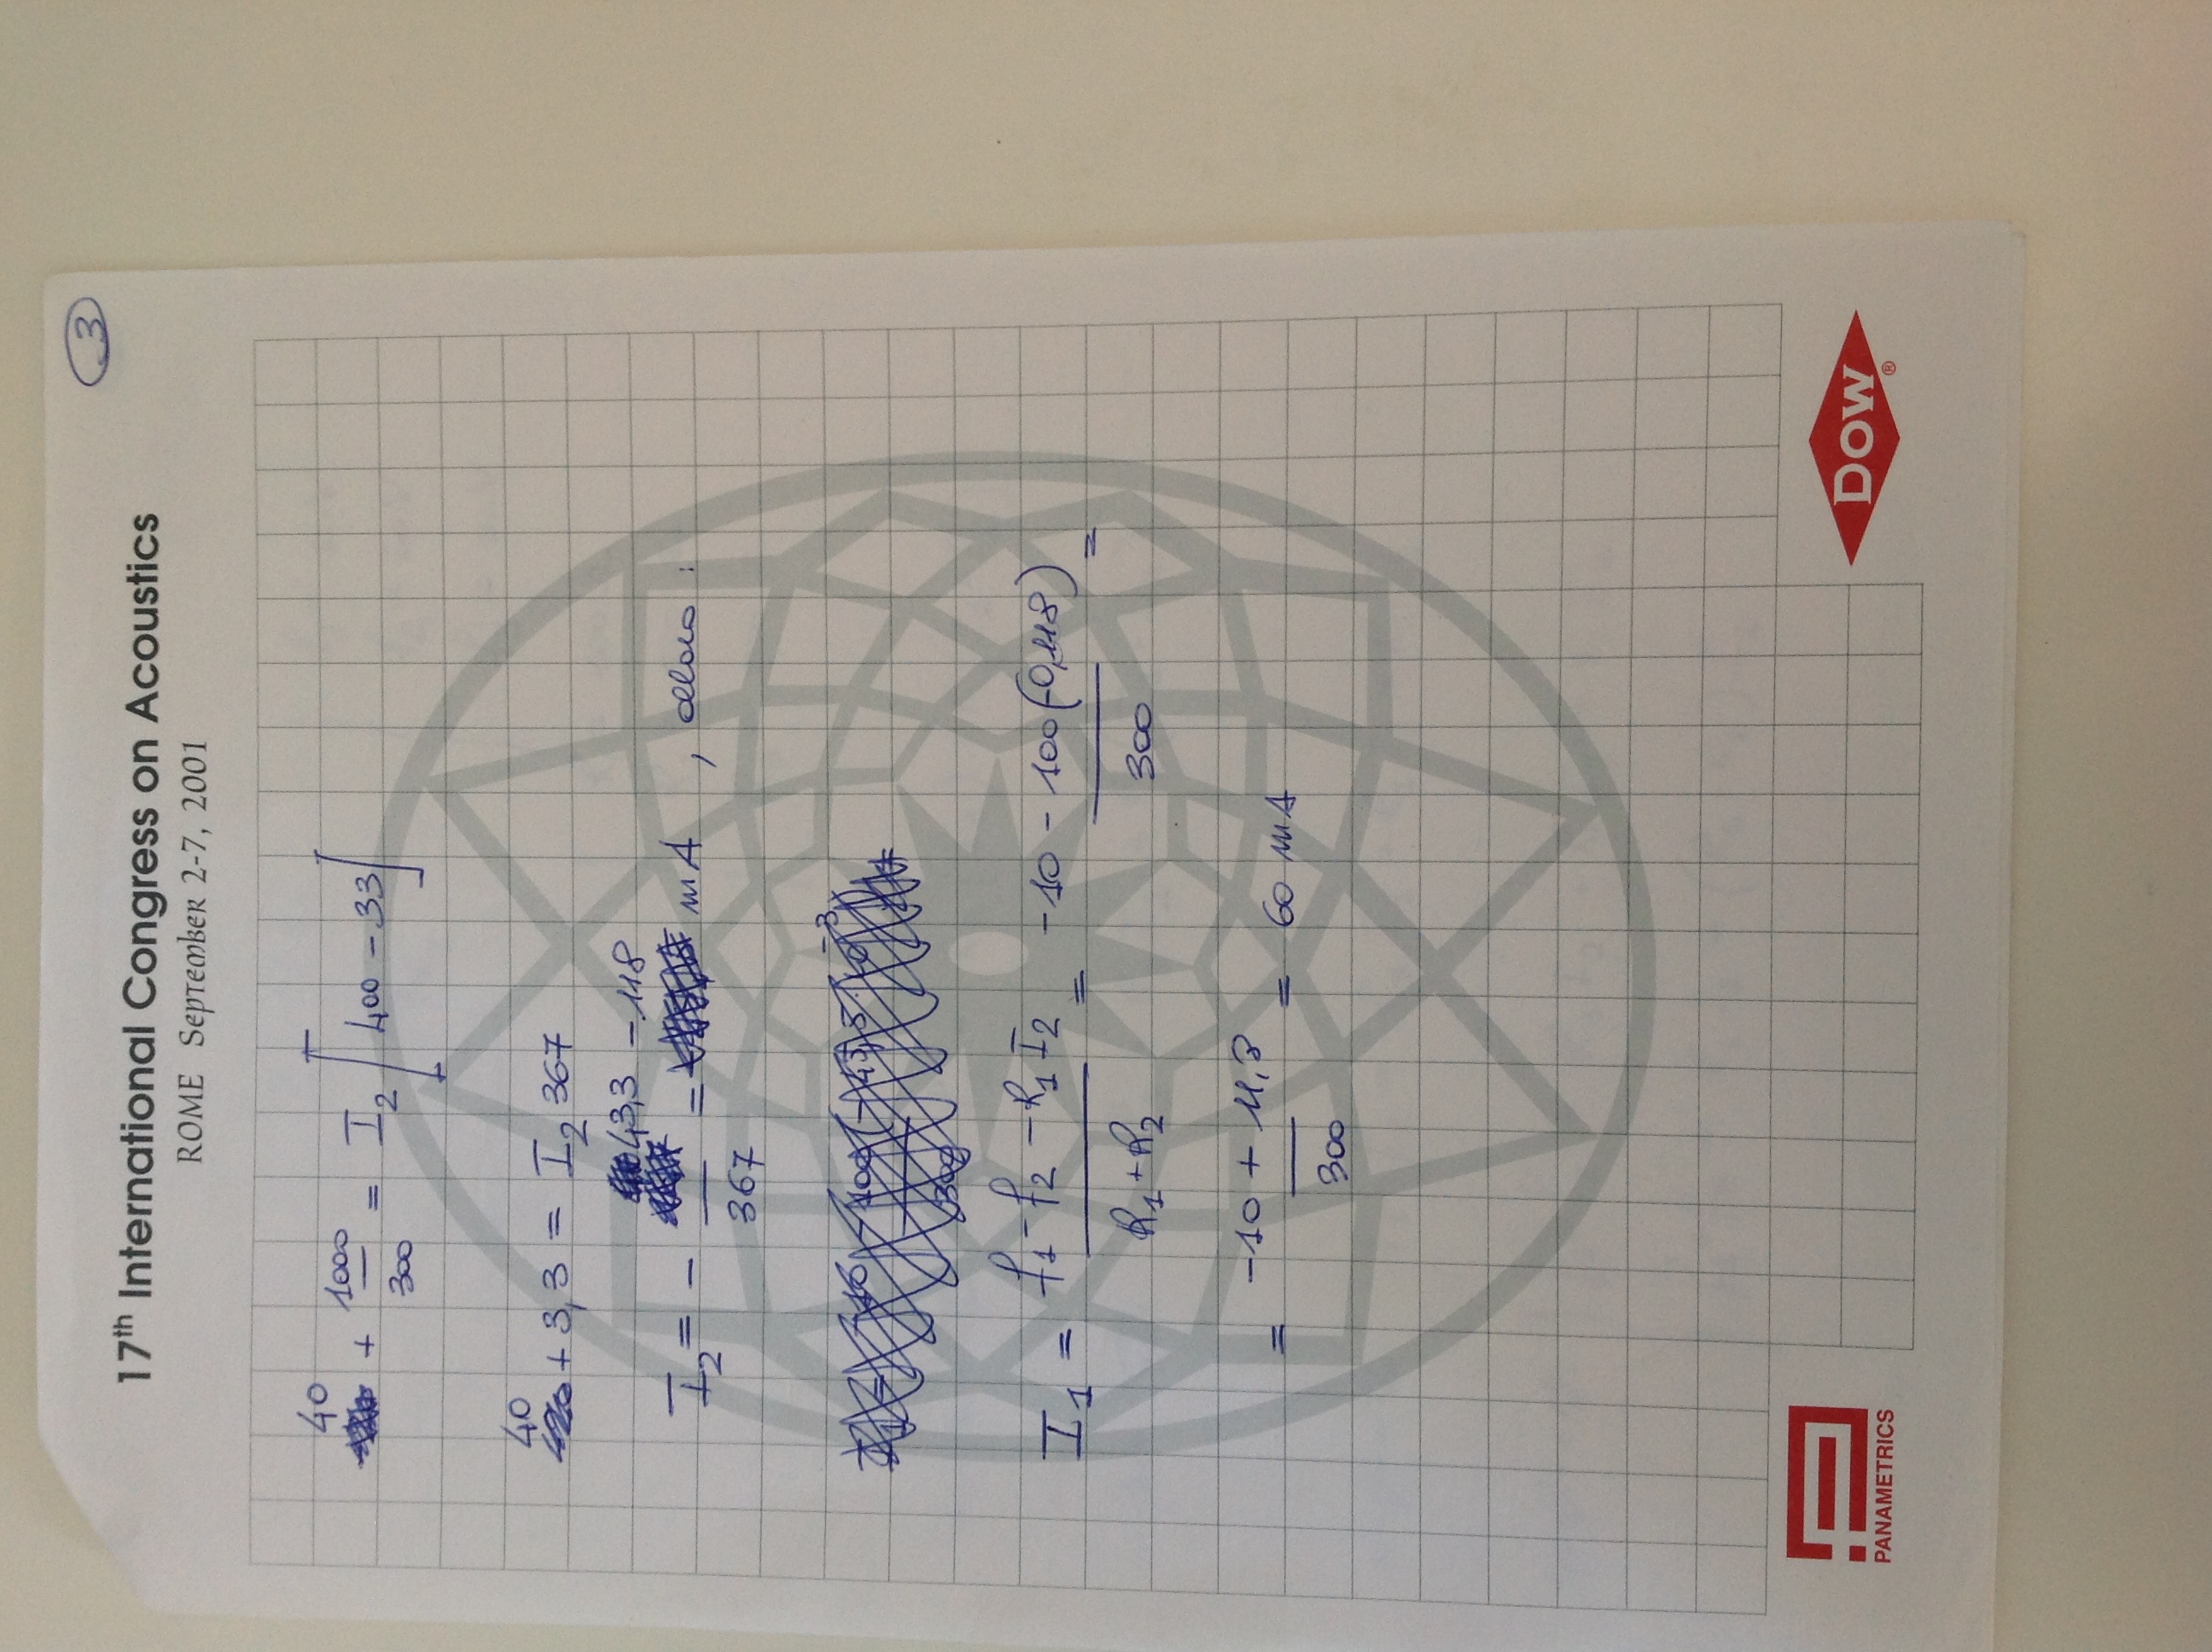 3
17th International Congress on Acoustics
ROME September 2-7, 2001
40
+ 1000/300 = I2 [400 - 33]
40
+ 3,3 = I2 367
I2 = - 43,3/367 = -118 mA , allora :
I1 = (f1 - f2 - R1 I2)/(R1 + R2) = (-10 - 100(-0,118))/300 =
= (-10 + 11,8)/300 = 60 mA
PANAMETRICS
DOW®